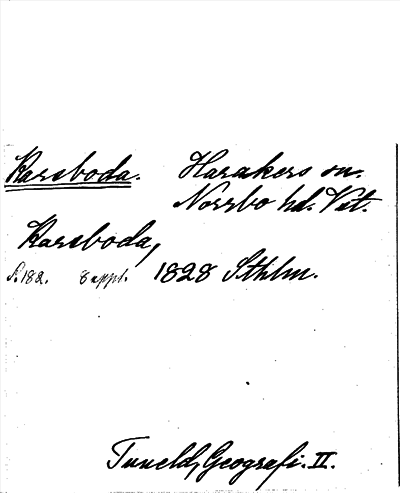 Karsboda. Harakers sn.
Norrbo hd. Vst.
Karsboda,
S. 182. 8 uppl. 1828 Sthlm.
Tuneld, Geografi. II.